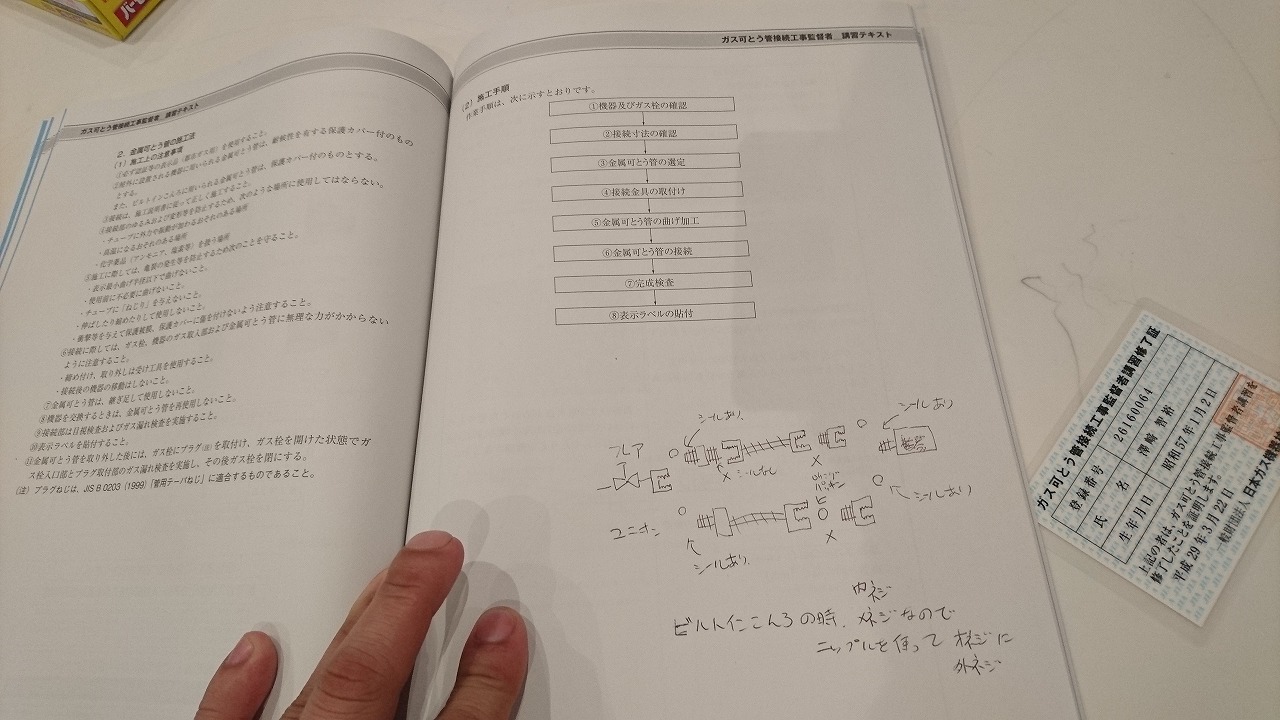 ガス可とう管接続工事監督者 講習テキスト
2. 金属可とう管の施工法
(1) 施工上の注意事項
①必ず認証等の表示品(都市ガス用)を使用すること。
②屋外に設置される機器に用いられる金属可とう管は、耐候性を有する保護カバー付のもの
とする。
また、ビルトインこんろに用いられる金属可とう管は、保護カバー付のものとする。
③接続は、施工説明書に従って正しく施工すること。
④接続部のゆるみおよび変形等を防止するため、次のような場所に使用してはならない。
・チューブに外力や振動が加わるおそれのある場所
・高温になるおそれのある場所
・化学薬品(アンモニア、塩素等)を扱う場所
⑤施工に際しては、亀裂の発生等を防止するため次のことを守ること。
・表示最小曲げ半径以下で曲げないこと。
・使用前に不必要に曲げないこと。
・チューブに「ねじり」を与えないこと。
・伸ばしたり縮めたりして使用しないこと。
・衝撃等を与えて保護被膜、保護カバーに傷を付けないよう注意すること。
⑥接続に際しては、ガス栓、機器のガス取入部および金属可とう管に無理な力がかからない
ように注意すること。
・締め付け、取り外しは受け工具を使用すること。
・接続後の機器の移動はしないこと。
⑦金属可とう管は、継ぎ足して使用しないこと。
⑧機器を交換するときは、金属可とう管を再使用しないこと。
⑨接続部は目視検査およびガス漏れ検査を実施すること。
⑩表示ラベルを貼付すること。
⑪金属可とう管を取り外した後には、ガス栓にプラグ(注)を取付け、ガス栓を開けた状態でガ
ス栓入口部とプラグ取付部のガス漏れ検査を実施し、その後ガス栓を閉にする。
(注) プラグねじは、JIS B 0203 (1999)「管用テーパねじ」に適合するものであること。
ガス可とう管接続工事監督者 講習テキスト
(2) 施工手順
作業手順は、次に示すとおりです。
①機器及びガス栓の確認
②接続寸法の確認
③金属可とう管の選定
④接続金具の取付け
⑤金属可とう管の曲げ加工
⑥金属可とう管の接続
⑦完成検査
⑧表示ラベルの貼付
シールあり
シールあり
フレア
シールなし
パッキン
シールあり
ユニオン
シールあり
内ネジ
ビルトインこんろの時、メネジなので
ニップルを使って オネジに
外ネジ
ガス可とう管接続工事監督者講習修了証
登録番号 26160064
氏名 澤崎 智裕
生年月日 昭和57年1月2日
上記の者は、ガス可とう管接続工事監督者講習を
修了したことを証明します。
平成29年3月22日
一般財団法人 日本ガス機器